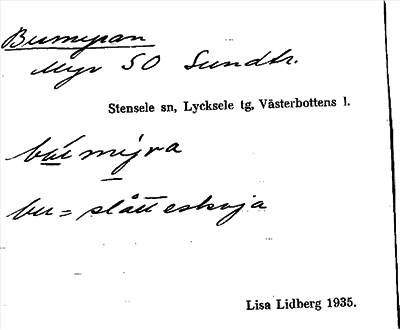 Bumyran
Myr SO Sundtr.
Stensele sn, Lycksele tg, Västerbottens l.
bu = slåtteskoja
Lisa Lidberg 1935.